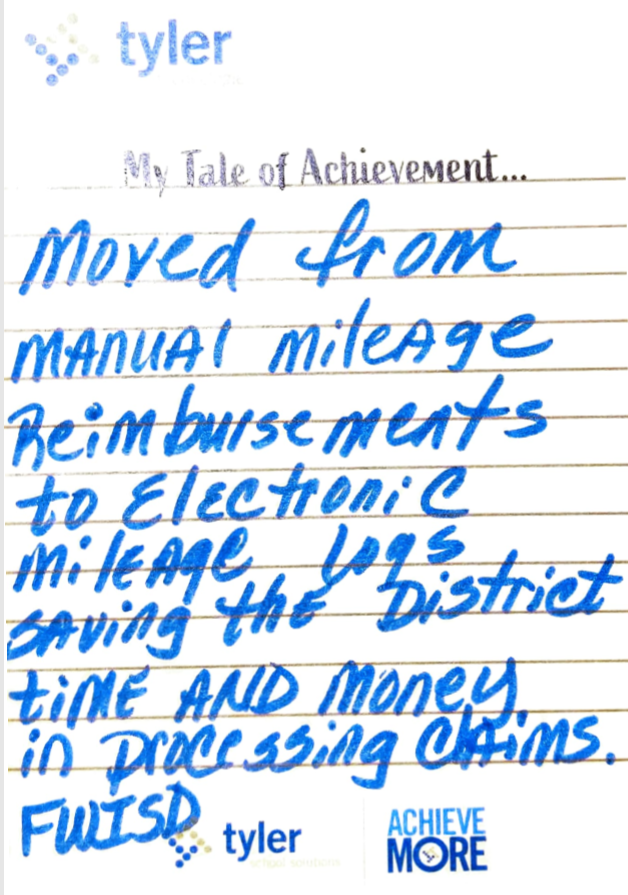 tyler
My Tale of Achievement...
Moved from
MANUAl mileAge
Reimbursements
to Electronic
mileAge logs
sAving the District
time AND money
in processing clAims.
FWISD
tyler
school solutions
ACHIEVE
MORE